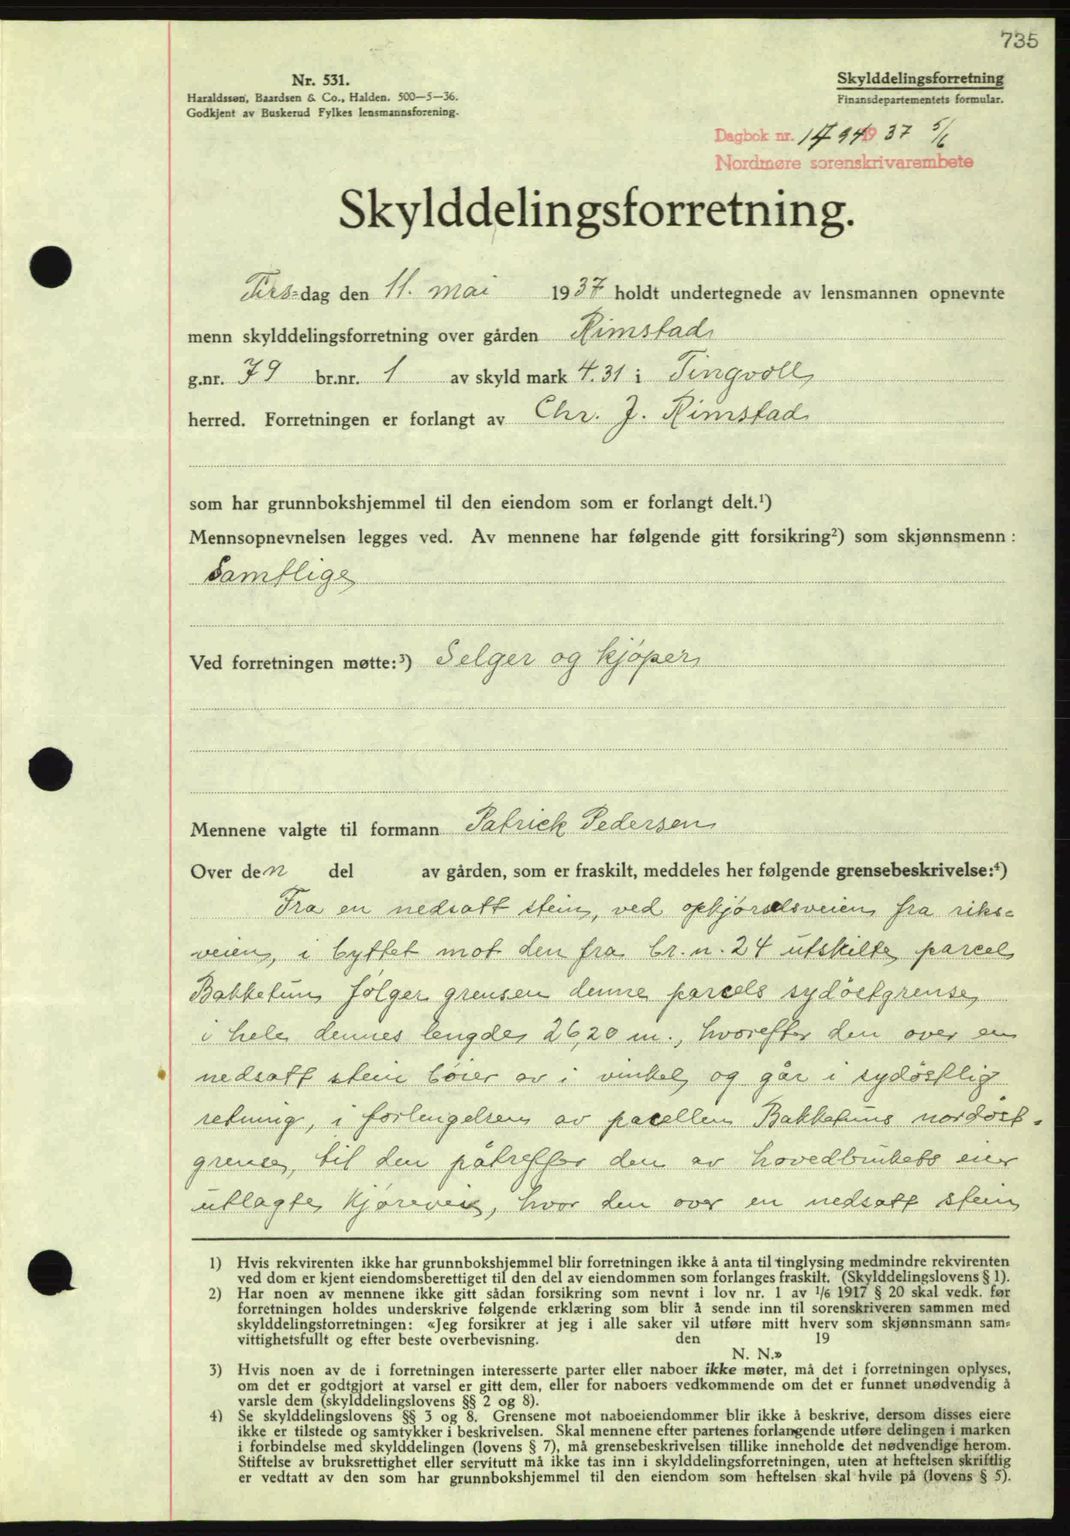 735
Nr. 531.
Haraldssøn, Baardsen & Co., Halden. 500—5—36.
Godkjent av Buskerud Fylkes lensmannsforening.
Skylddelingsforretning
Finansdepartementets formular.
Dagbok nr. 1794 1937 5/6
Nordmøre sorenskrivarembete
Skylddelingsforretning.
Tirs-dag den 11. mai 1937 holdt undertegnede av lensmannen opnevnte
menn skylddelingsforretning over gården Rimstad
g.nr. 79 br.nr. 1 av skyld mark 4.31 i Tingvoll
herred. Forretningen er forlangt av Chr. J. Rimstad
som har grunnbokshjemmel til den eiendom som er forlangt delt.¹)
Mennsopnevnelsen legges ved. Av mennene har følgende gitt forsikring²) som skjønnsmenn:
Samtlige
Ved forretningen møtte:³) Selger og kjøper
Mennene valgte til formann Patrick Pedersen
Over den del av gården, som er fraskilt, meddeles her følgende grensebeskrivelse:⁴)
Fra en nedsatt stein, ved opkjørselsveien fra riks-
veien, i byttet mot den fra br.n. 24 utskilte parcel
Bakketun følger grensen denne parcels sydøstgrense
i hele dennes lengde 26,20 m., hvorefter den over en
nedsatt stein bøier av i vinkel og går i sydøstlig
retning, i forlengelsen av parcellen Bakketuns nordøst-
grense, til den påtreffer den av hovedbrukets eier
utlagte kjørevei, hvor den over en nedsatt stein
1) Hvis rekvirenten ikke har grunnbokshjemmel blir forretningen ikke å anta til tinglysing medmindre rekvirenten
ved dom er kjent eiendomsberettiget til den del av eiendommen som forlanges fraskilt. (Skylddelingslovens § 1).
2) Har noen av mennene ikke gitt sådan forsikring som nevnt i lov nr. 1 av 1/6 1917 § 20 skal vedk. før
forretningen holdes underskrive følgende erklæring som blir å sende inn til sorenskriveren sammen med
skylddelingsforretningen: «Jeg forsikrer at jeg i alle saker vil utføre mitt hverv som skjønnsmann sam-
vittighetsfullt og efter beste overbevisning. den 19
N. N.»
3) Hvis noen av de i forretningen interesserte parter eller naboer ikke møter, må det i forretningen oplyses,
om det er godtgjort at varsel er gitt dem, eller for naboers vedkommende om det er funnet unødvendig å
varsle dem (skylddelingslovens §§ 2 og 8).
4) Se skylddelingslovens §§ 3 og 8. Grensene mot naboeiendommer blir ikke å beskrive, dersom disses eiere
ikke er tilstede og samtykker i beskrivelsen. Skal mennene efter partenes forlangende utføre delingen i marken
i forbindelse med skylddelingen (lovens § 7), må grensebeskrivelsen tillike inneholde det nødvendige herom.
Stiftelse av bruksrettighet eller servitutt må ikke tas inn i skylddelingsforretningen, uten at heftelsen skriftlig
er vedtatt av den som har grunnbokshjemmel til den eiendom som heftelsen skal hvile på (lovens § 5).